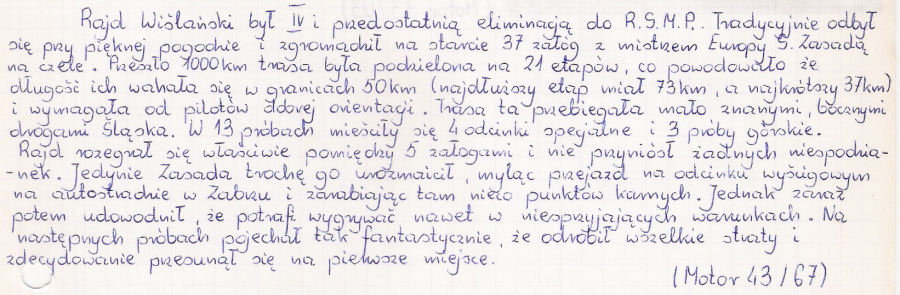 Rajd Wiślański był IV i przedostatnią eliminacją do R.S.M.P.. Tradycyjnie odbył
się przy pięknej pogodzie i zgromadził na starcie 37 załóg z mistrzem Europy S. Zasadą
na czele. Przeszło 1000km trasa była podzielona na 21 etapów, co powodowało że
długość ich wahała się w granicach 50km (najdłuższy etap miał 73km, a najkrótszy 37km)
i wymagała od pilotów dobrej orientacji. Trasa ta przebiegała mało znanymi, bocznymi
drogami Śląska. W 13 próbach mieściły się 4 odcinki specjalne i 3 próby górskie.
Rajd rozegrał się właściwie pomiędzy 5 załogami i nie przyniósł żadnych niespodzia-
-nek. Jedynie Zasada trochę go urozmaicił, myląc przejazd na odcinku wyścigowym
na autostradzie w Zabrzu i zarabiając tam nieco punktów karnych. Jednak zaraz
potem udowodnił, że potrafi wygrywać nawet w niesprzyjających warunkach. Na
następnych próbach pojechał tak fantastycznie, że odrobił wszelkie straty i
zdecydowanie przesunął się na pierwsze miejsce.
(Motor 43/67)